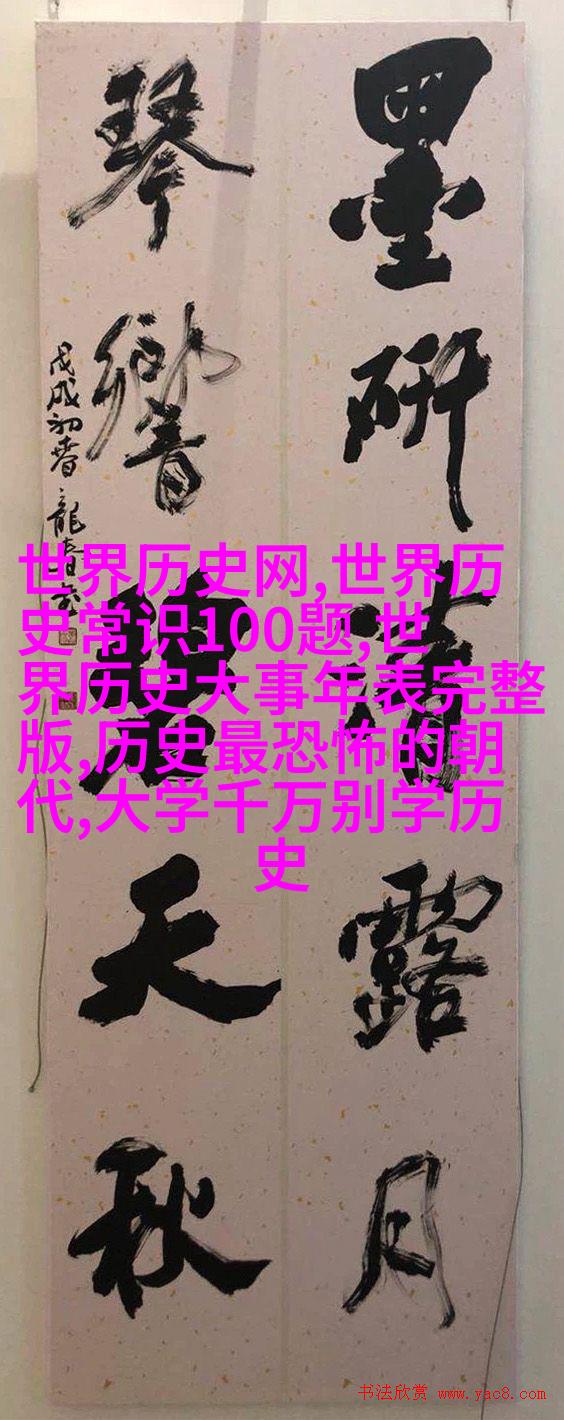 墨研清露月
琴響碧天秋
戊戌初春 龍
世界历史网,世界历
史常识100题,世
界历史大事年表完整
版,历史最恐怖的朝
代,大学千万别学历
史
书法欣赏 www.yac8.com